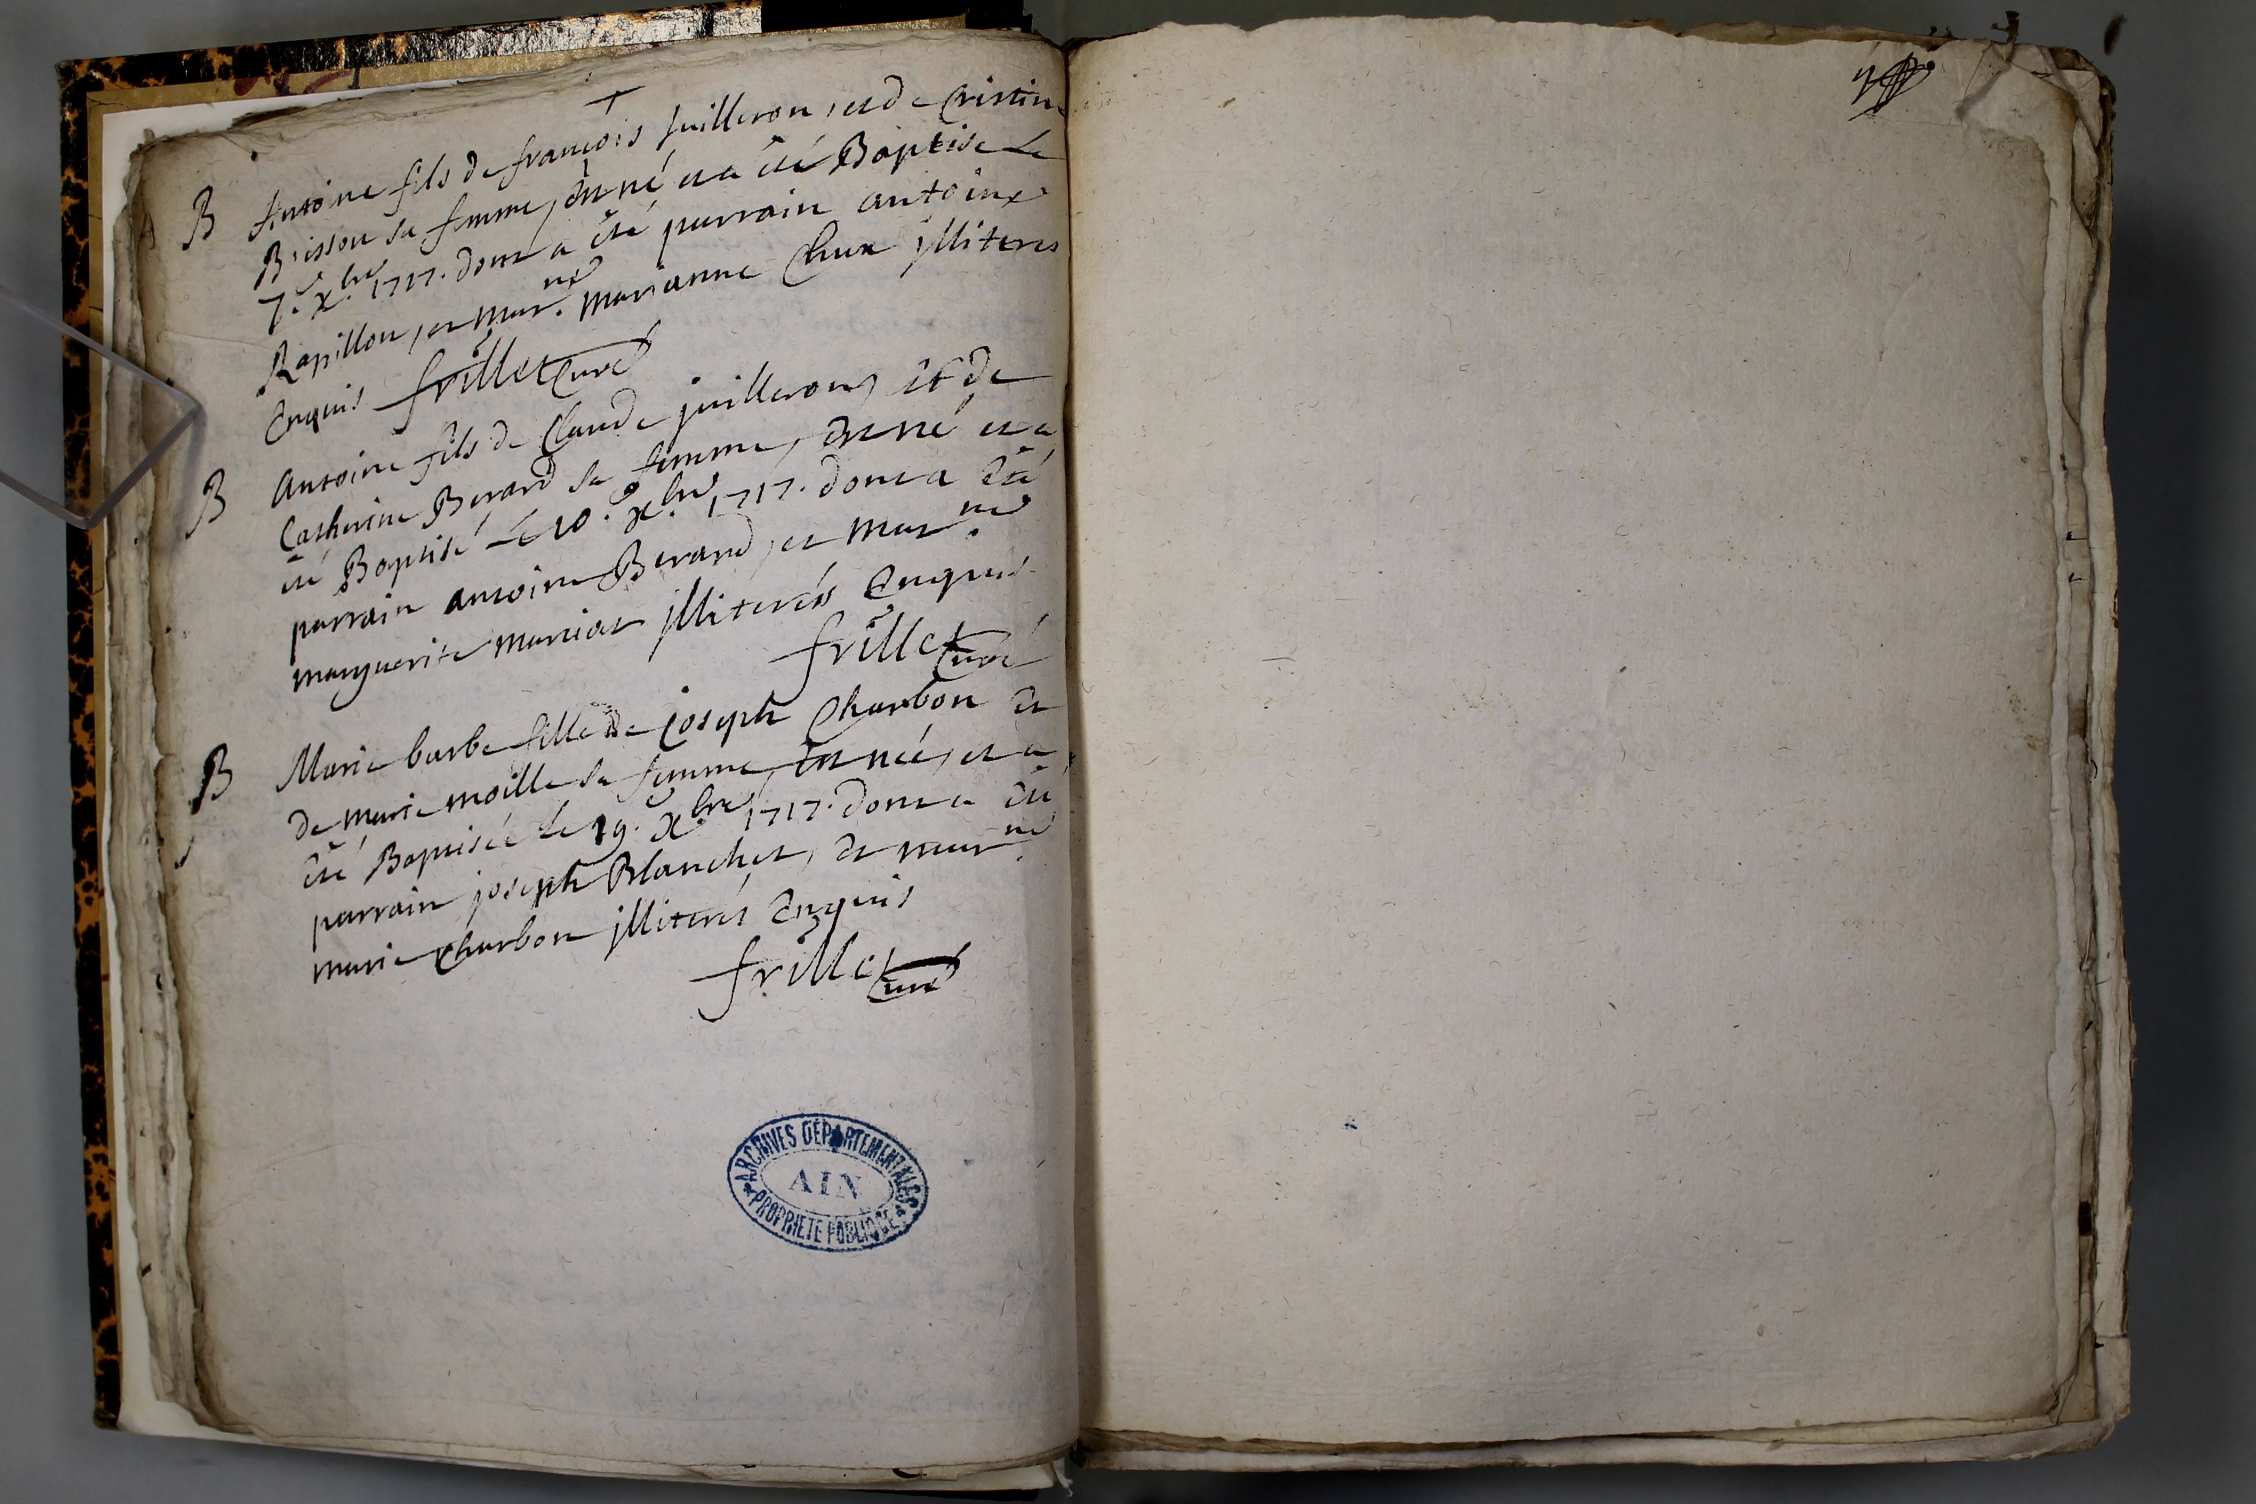 B Antoine fils de françois juilleron, et de Cristine
Brisson sa femme, est né et a été Baptisé Le
7.e Xbre 1717. dont a été parrain antoine
Rapillon, et marne. marianne Chux jlliteres
Enquis frillet Curé
B Antoine fils de Claude juilleron, et de
Catherine Berard sa femme, est né et a
été Baptisé Le 10.e Xbre 1717. dont a été
parrain antoine Berard, et marne.
marguerite marciat jlliterés Enquis
frillet Curé
B Marie barbe fille de joseph Charbon et
de marie moille sa femme, est née, et a
été Baptisée Le 19. Xbre 1717. dont a été
parrain joseph Blanchet, et marne.
marie Charbon jlliterés Enquis
frillet Curé
ARCHIVES DÉPARTEMENTALES
AIN
PROPRIÉTÉ PUBLIQUE